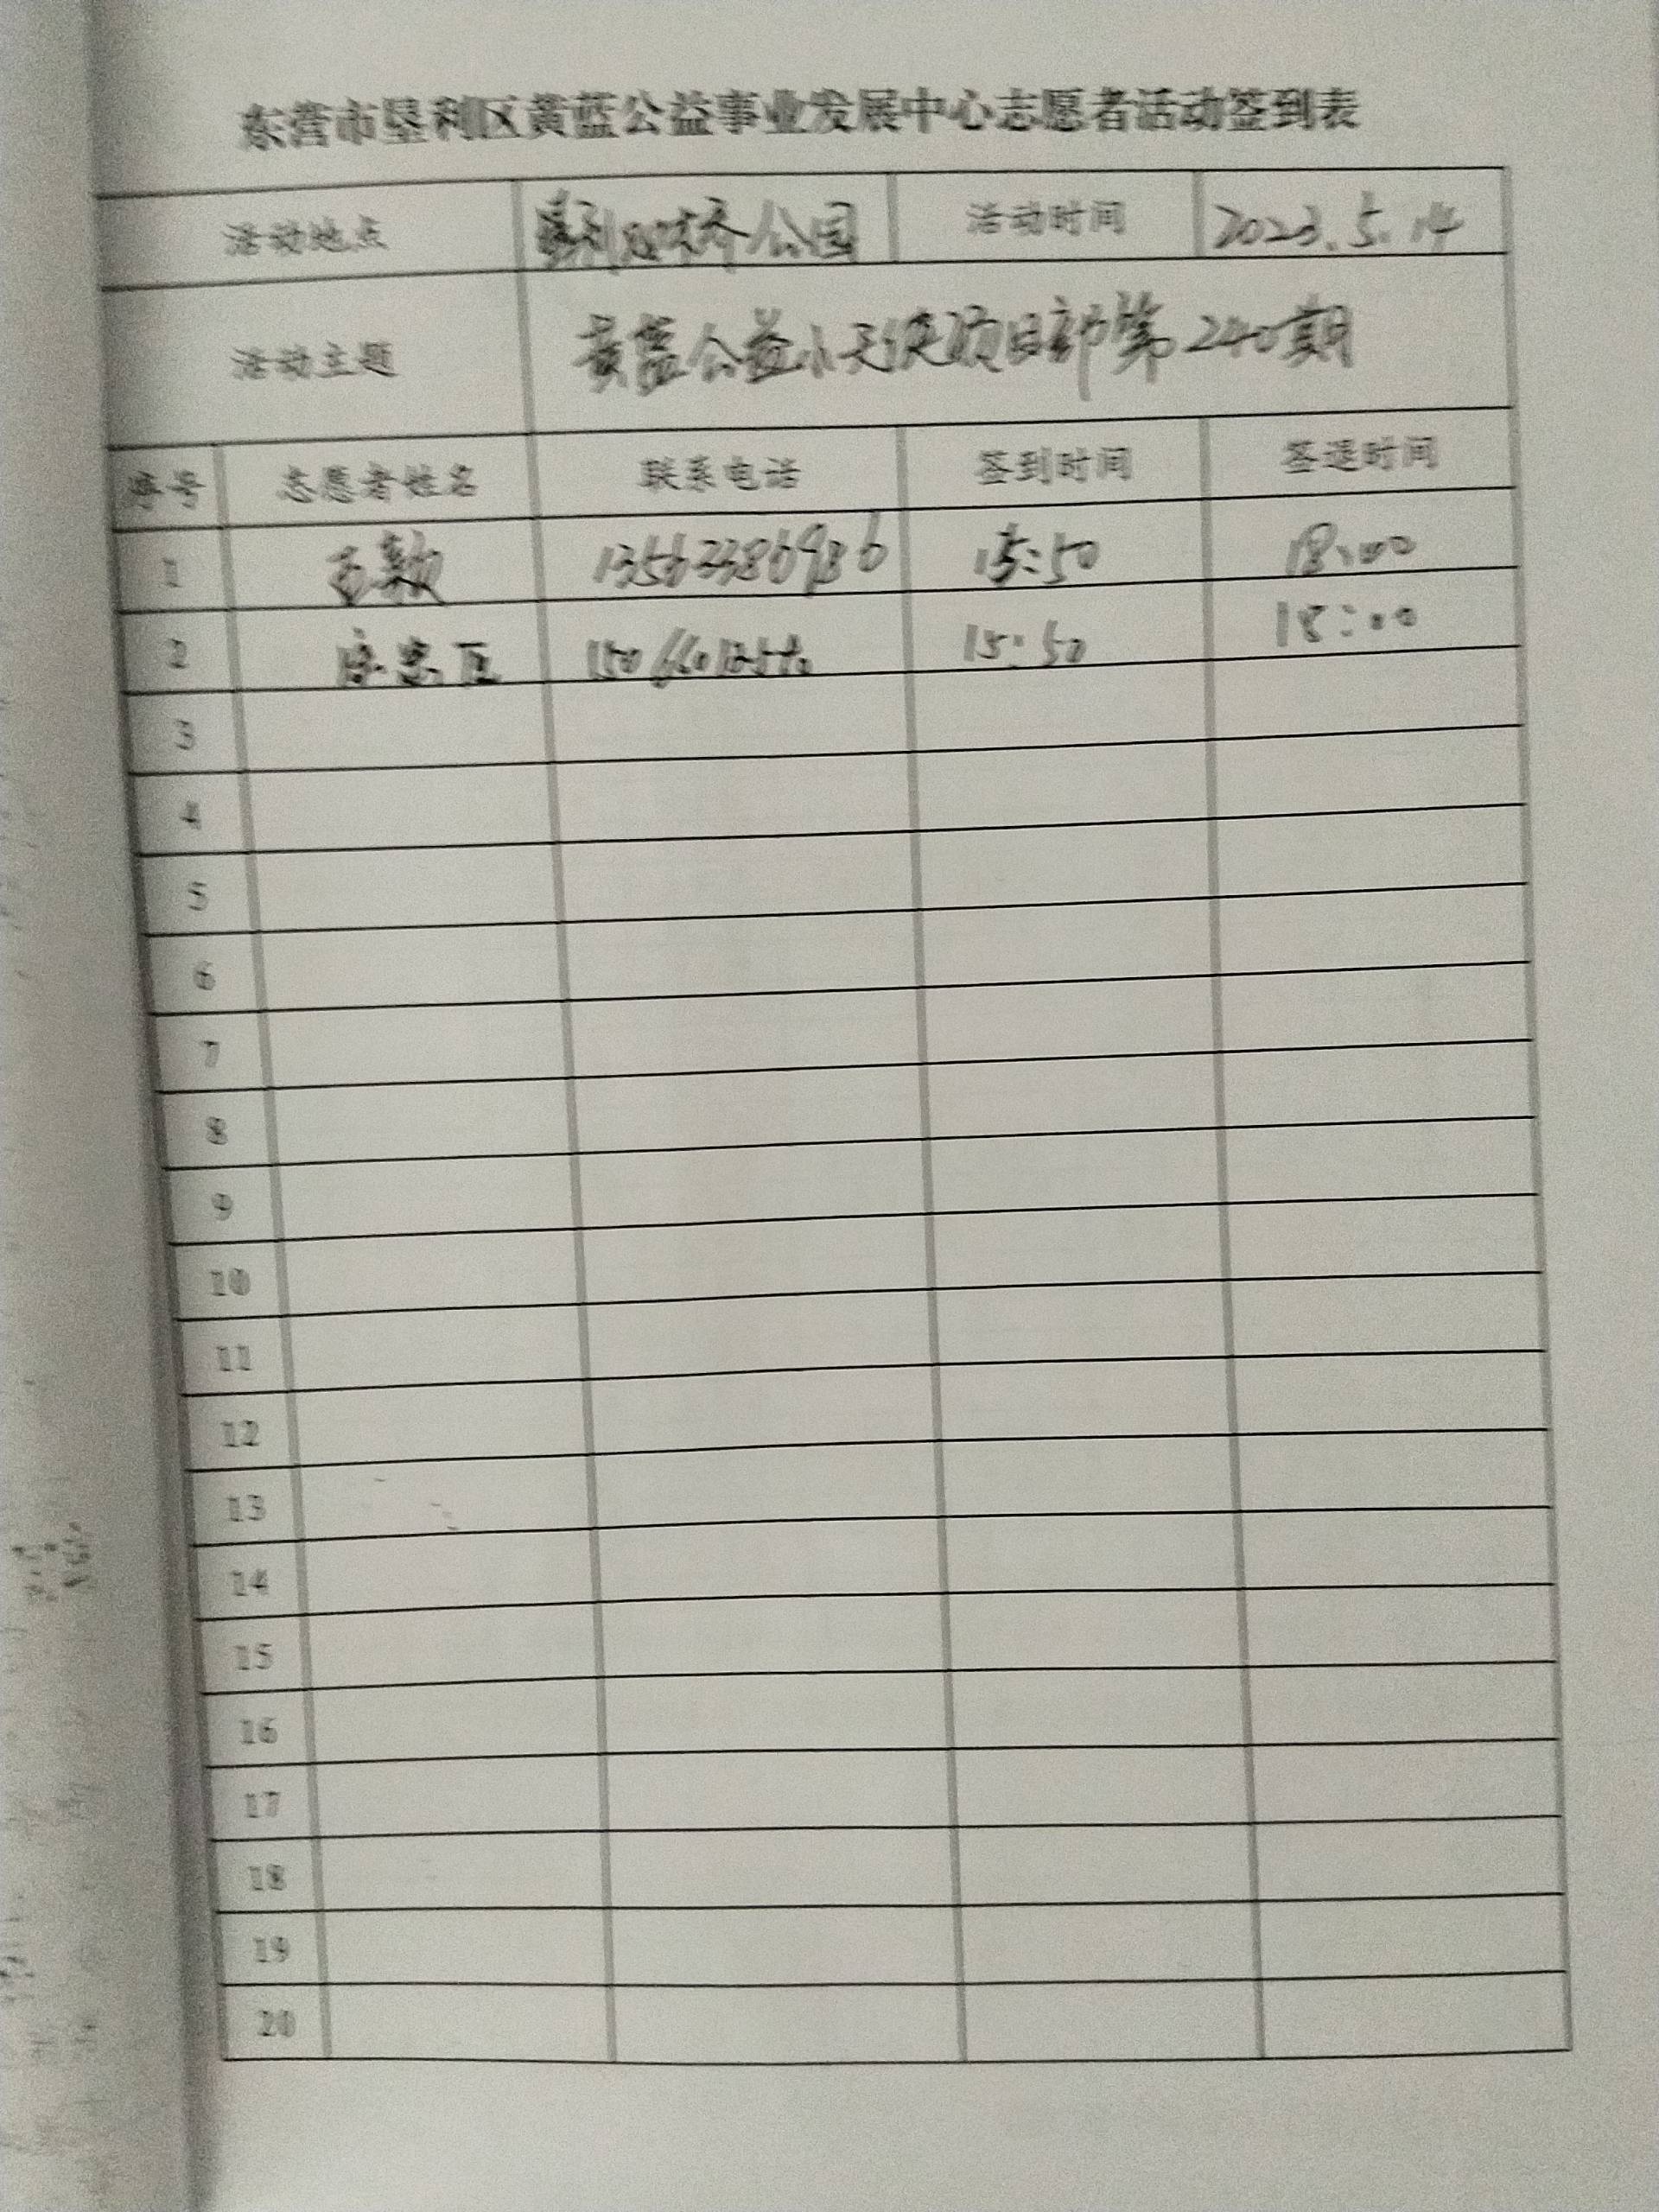 东营市垦利区黄蓝公益事业发展中心志愿者活动签到表
活动地点 垦利 公园 活动时间 2023.5.14
活动主题 黄蓝公益小天使项目部第240期
序号 志愿者姓名 联系电话 签到时间 签退时间
1 13562386986 15:50 18:00
2 15:50 18:00
3
4
5
6
7
8
9
10
11
12
13
14
15
16
17
18
19
20